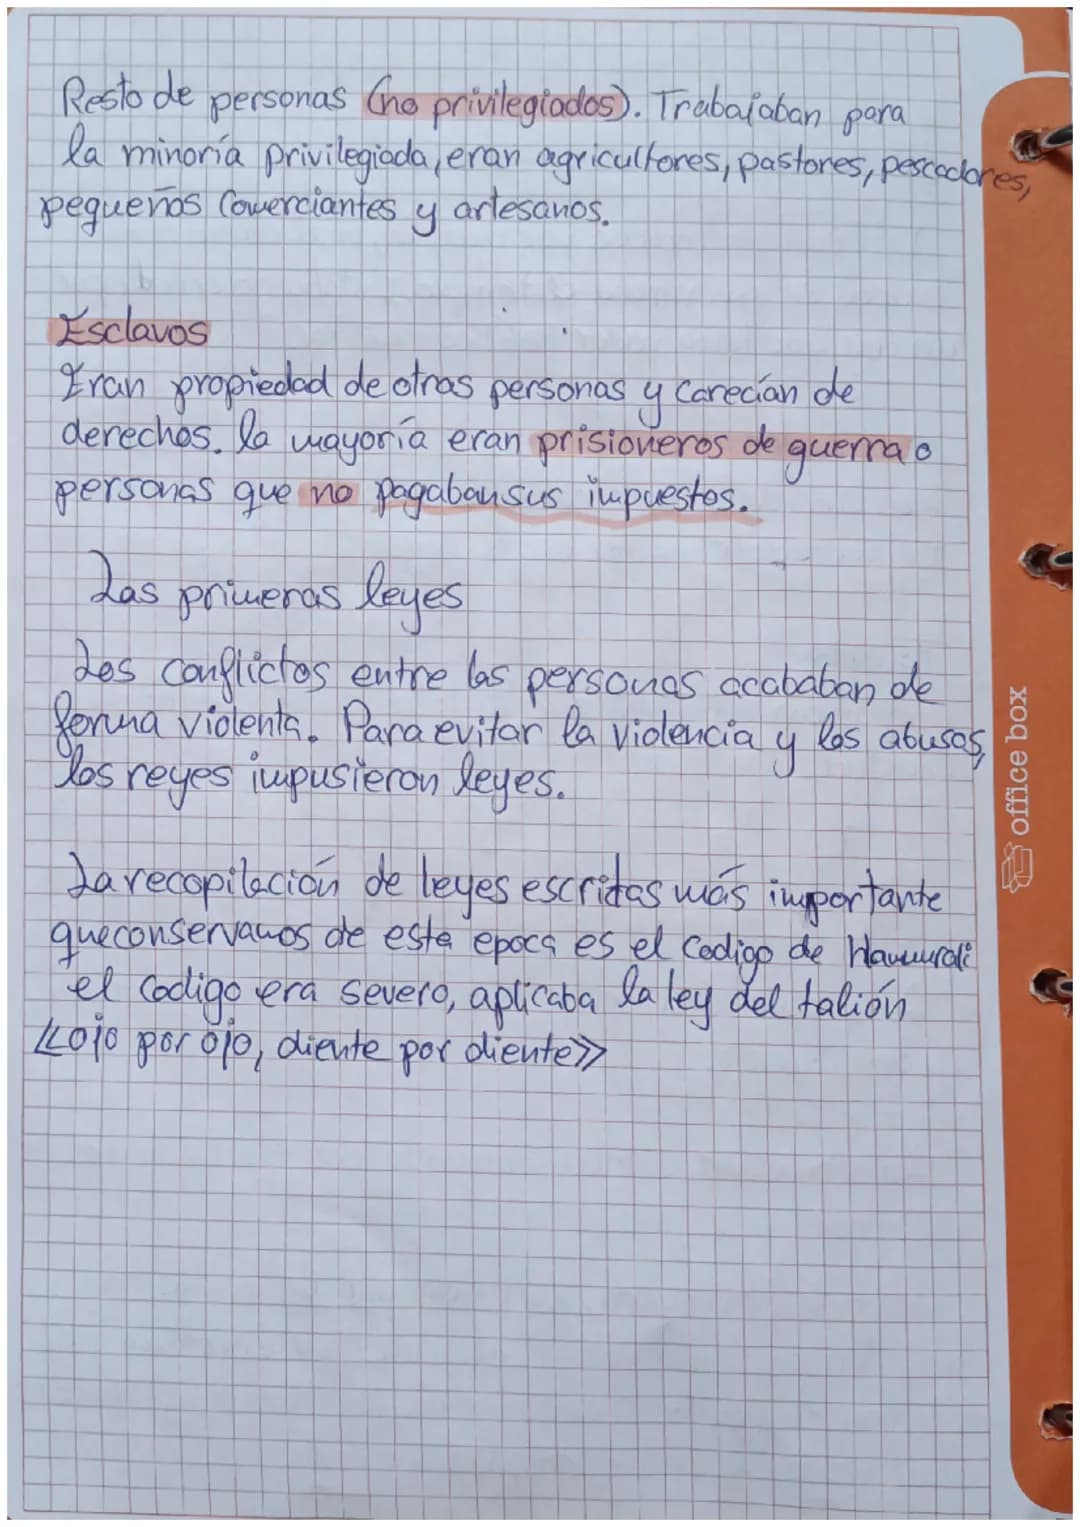 Resto de personas (no privilegiados). Trabajaban para
la minoría privilegiada, eran agricultores, pastores, pescadores,
pequeños comerciantes y artesanos.
Esclavos
Eran propiedad de otras personas y carecían de
derechos. la mayoría eran prisioneros de guerra o
personas que no pagaban sus impuestos.
Las primeras leyes
Los conflictos entre las personas acababan de
forma violenta. Para evitar la violencia y los abusos,
los reyes impusieron leyes.
La recopilación de leyes escritas más importante
que conservamos de esta epoca es el Codigo de Hammurali
el codigo era severo, aplicaba la ley del talión
«ojo por ojo, diente por diente»
office box